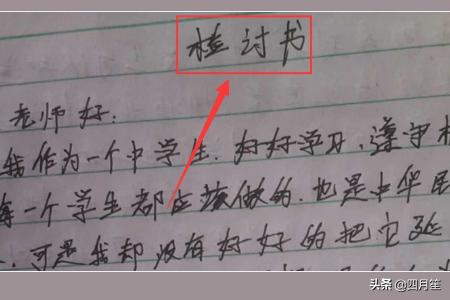 检讨书
老师好:
我作为一个中学生.好好学习,遵守
每一个学生都应该做的.也是中华民
.可是我却没有好好的把它延
头条 @四月笙